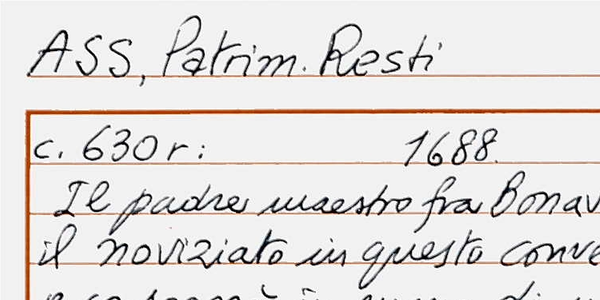 ASS, Patrim. Resti
c. 630 r: 1688.
Il padre maestro fra Bonav
il noviziato in questo conve